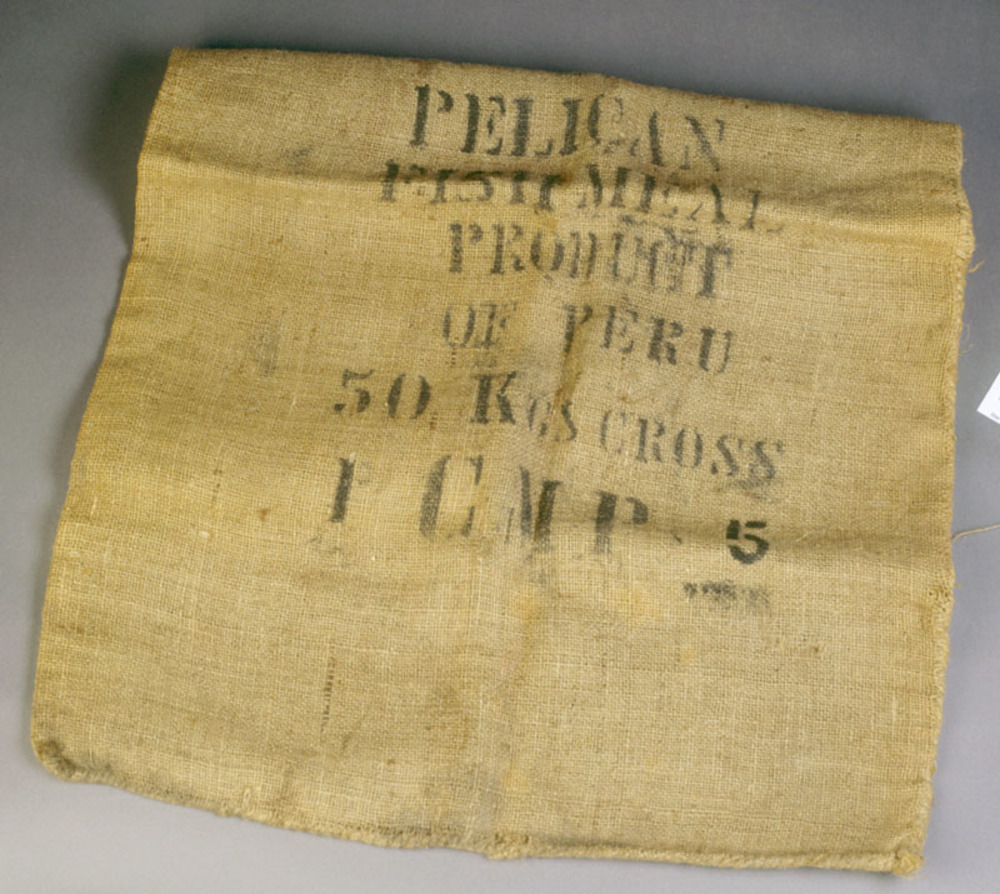 PELICAN
FISH MEAL
PRODUCT
OF PERU
50 KGS GROSS
F C M P 5